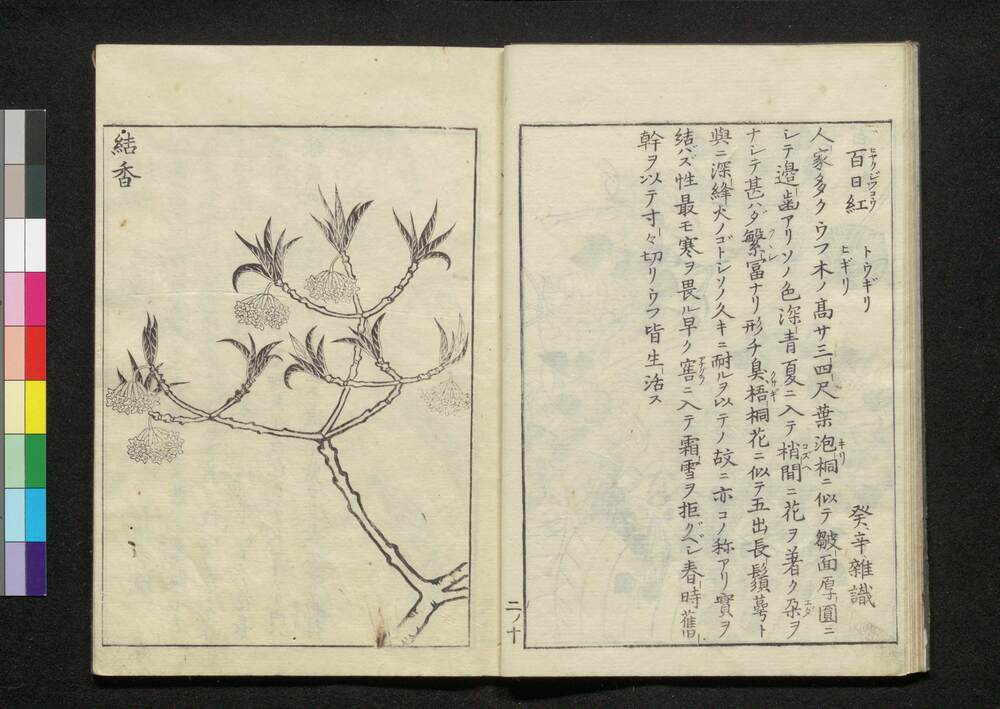 百日紅 癸辛雜識
ヒヤクジツコウ
トウギリ
ヒギリ
人家多クウフ木ノ髙サ三四尺葉泡桐ニ似テ皺面厚圓ニ
キリ
シテ邉歯アリソノ色深青夏ニ入テ梢間ニ花ヲ著ク朶ヲ
コズヘ
エダ
ナシテ甚ハダ繁冨ナリ形チ臭梧桐花ニ似テ五出長鬚蕚ト
クサギ
與ニ深絳火ノゴトシソノ久キニ耐ルヲ以テノ故ニ亦コノ称アリ實ヲ
結バズ性最モ寒ヲ畏ル早ク窖ニ入テ霜雪ヲ拒グベシ春時舊
アナグラ
幹ヲ以テ寸々切リウフ皆生活ス
二ノ十
結香